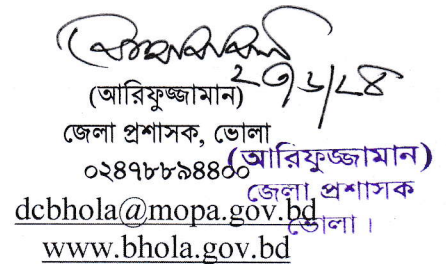 (আরিফুজ্জামান)
জেলা প্রশাসক, ভোলা
০২৪৭৮৮৯৪৪০০
dcbhola@mopa.gov.bd
www.bhola.gov.bd
(আরিফুজ্জামান)
জেলা প্রশাসক
ভোলা।